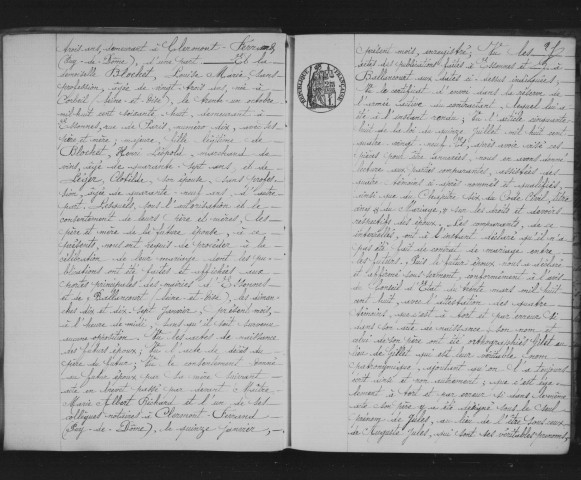 trois ans, demeurant à Clermont-Ferrand
(Puy-de-Dôme), d'une part. Et la
demoiselle Blochet, Louise Marie, sans
profession, âgée de vingt-trois ans, née à
Corbeil (Seine-et-Oise), le trente un octobre
mil huit cent soixante huit, demeurant à
Essonnes, rue de Paris, numéro dix, avec ses
père et mère; majeure, fille légitime de
Blochet, Henri Léopold, marchand de
vins, âgé de quarante sept ans, et de
Clotilde, son épouse, sans profes-
sion, âgée de quarante-neuf ans, d'autre
part. Lesquels, sous l'autorisation et le
consentement de leurs père et mères, les
père et mère de la future épouse, à ce
présents, nous ont requis de procéder à la
célébration de leur mariage dont les pu-
blications ont été faites et affichées aux
portes principales des mairies d'Essonnes
et de Ballancourt (Seine et Oise), les diman-
ches dix et dix sept janvier, présent mois,
à l'heure de midi, sans qu'il soit survenu
aucune opposition. Vu les actes de naissance
des futurs époux; Vu l'acte de décès du
père du futur; Vu le consentement donné
au futur époux par sa mère suivant
acte en brevet passé par devant Maître
Marie Albert Richard et l'un de ses
collègues notaires à Clermont Ferrand
(Puy-de-Dôme), le quinze janvier,
présent mois, enregistré; Vu les
actes des publications faites à Essonnes et à
Ballancourt aux dates ci-dessus indiquées;
Vu le certificat d'envoi dans la réserve de
l'armée active du contractant, lequel lui a
été à l'instant rendu; Vu l'article cinquante
huit de la loi du quinze Juillet mil huit cent
quatre vingt neuf; après avoir visé ces
pièces pour être annexées, nous en avons donné
lecture aux parties comparantes, assistées des
quatre témoins ci-après nommés et qualifiés,
ainsi que du Chapitre Six du Code Civil, titre
cinq du Mariage, sur les droits et devoirs
respectifs des époux. Les comparants, de ce
interpellés, ont à l'instant déclaré qu'il n'a
pas été fait de contrat de mariage entre
les futurs. Puis le futur époux nous a déclaré
et affirmé sous serment, conformément à l'avis
du Conseil d'Etat du trente mars mil huit
cent huit, avec l'attestation des quatre
témoins, que c'est à tort et par erreur si
dans son acte de naissance son nom et
celui de son père ont été orthographiés Gilet au
lieu de Gillet qui est leur véritable nom
patronymique, ajoutant qu'on l'a toujours
écrit ainsi et non autrement; que c'est éga-
lement à tort et par erreur si dans le même
acte son père a été désigné sous le seul
prénom de Jules, au lieu de l'être sous ceux
de Auguste Jules, qui sont ses véritables prénoms,